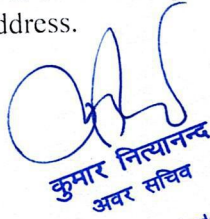 ddress.
कुमार नित्यानन्द
अवर सचिव